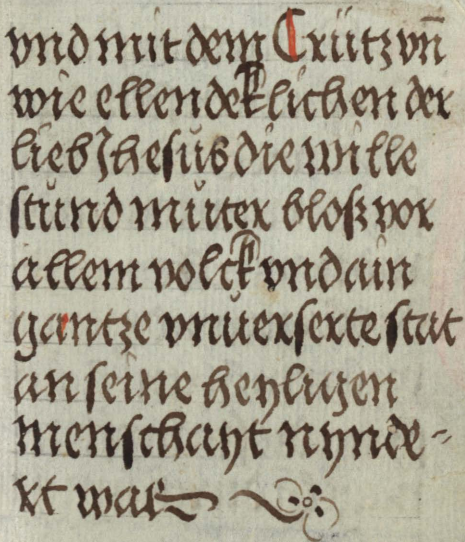 vnd mit dem Crütz vn̄
wie ellendeklichen der
lieb Jhesus die wille
stůnd můter bloß vor
allem volck vnd ain
gantze vnuerserte stat
an seine heyligen
menschayt nynde-
rt war